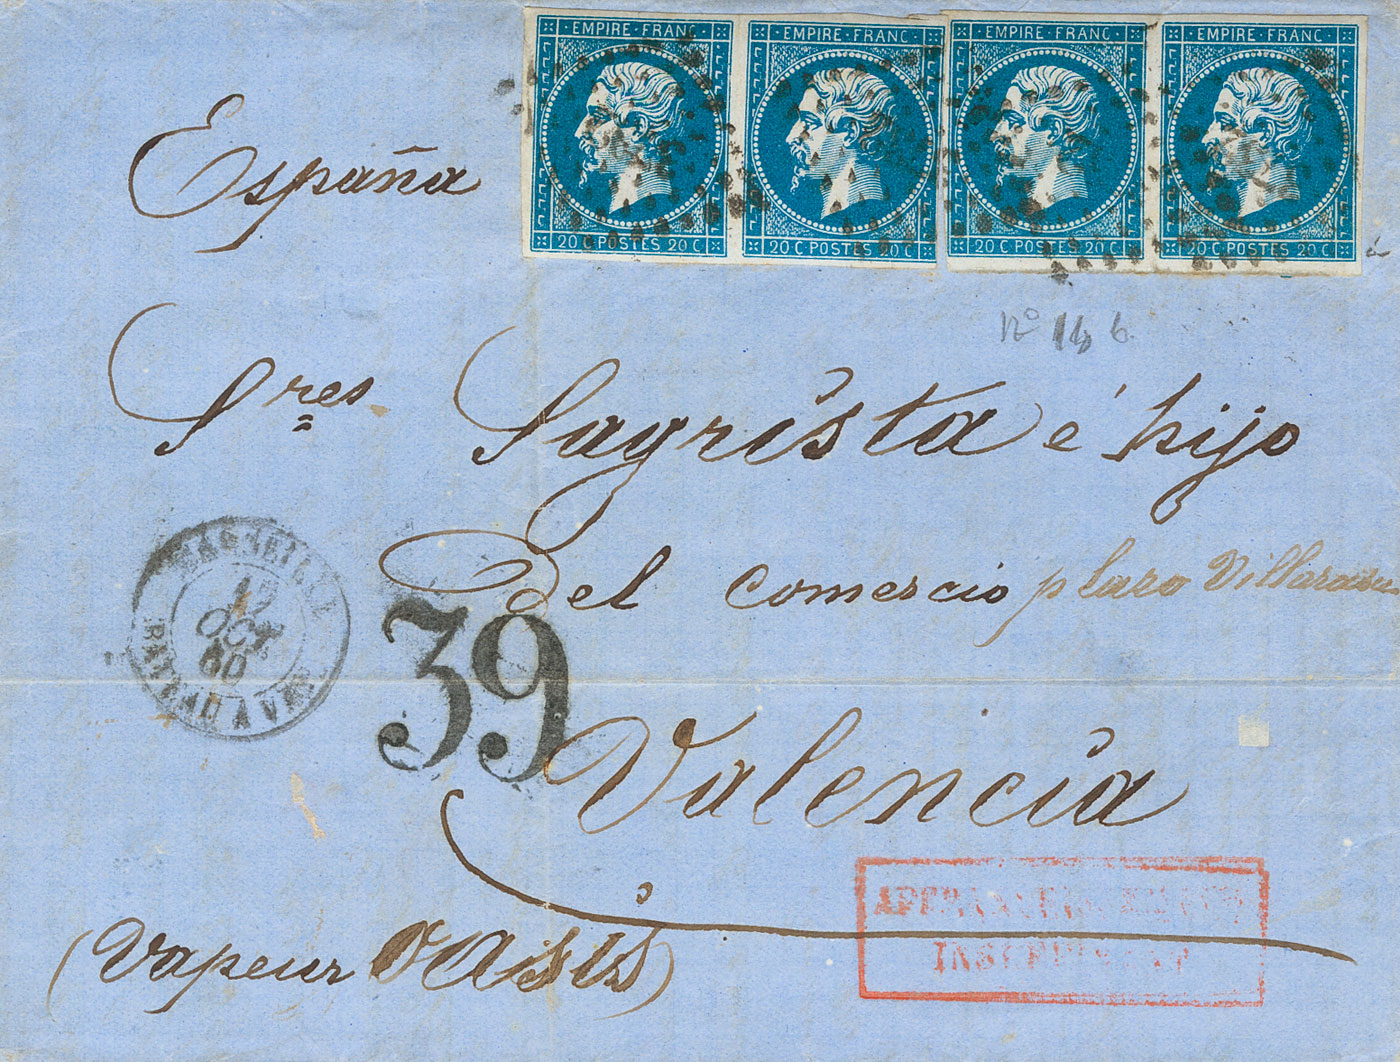 EMPIRE · FRANC · EMPIRE · FRANC · EMPIRE · FRANC · EMPIRE · FRANC ·
20 C POSTES 20 C 20 C POSTES 20 C 20 C POSTES 20 C 20 C POSTES 20 C
España
nº 14 b
Sres Sagrista é hijo
Del comercio
MARSEILLE
OCT.
60
BATEAU A VAP.
39
Valencia
(Vapeur Oasis)
INSUFFISANT